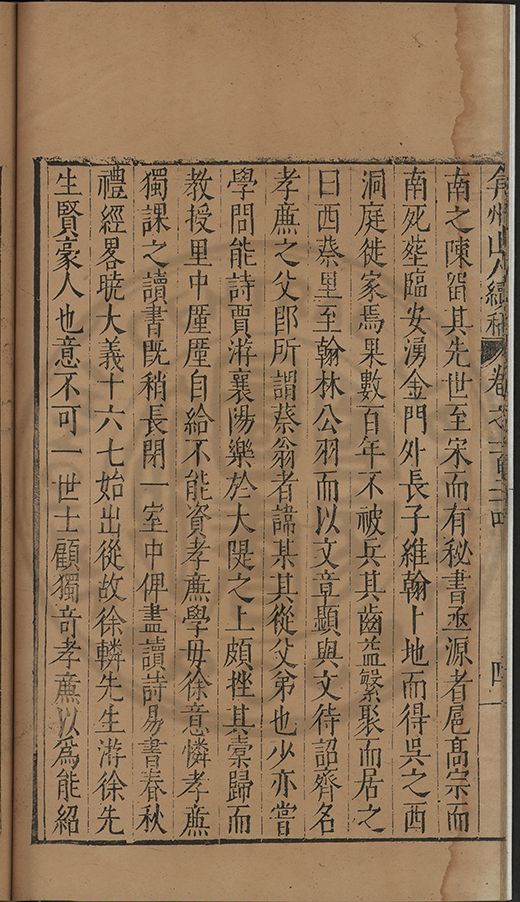 弇州山人續稿 卷之一百二十四 四
南之陳留其先世至宋而有秘書丞源者扈髙宗而
南死塟臨安湧金門外長子維翰卜地而得吳之西
洞庭徙家焉果數百年不被兵其齒益繁聚而居之
曰西蔡里至翰林公羽而以文章顯與文待詔齊名
孝亷之父卽所謂蔡翁者諱某其從父弟也少亦嘗
學問能詩賈游襄陽樂於大隄之上頗挫其槖歸而
教授里中厪厪自給不能資孝亷學毋徐意憐孝亷
獨課之讀書旣稍長閉一室中俾盡讀詩易書春秋
禮經畧曉大義十六七始出從故徐轔先生游徐先
生賢豪人也意不可一世士顧獨竒孝亷以爲能紹